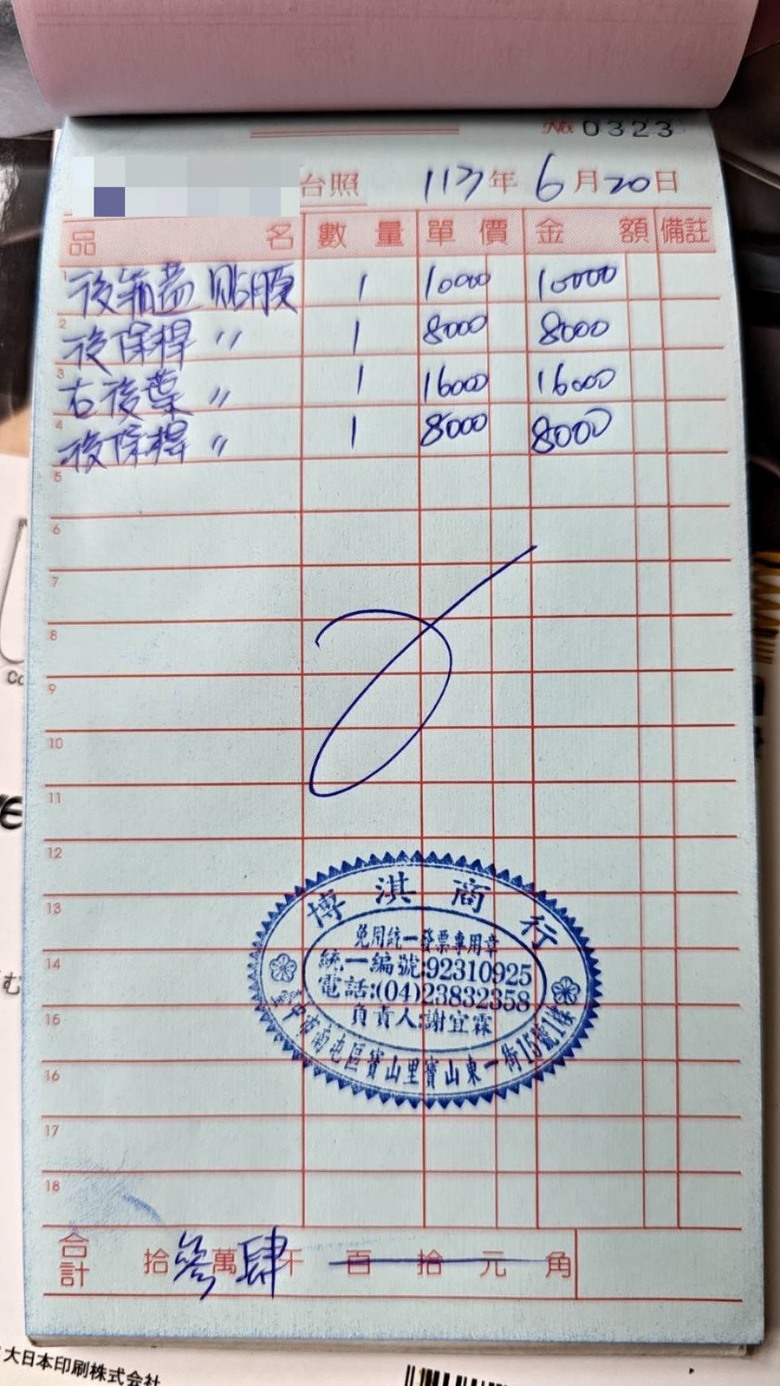 No 0323
台照 113年 6月20日
品名 數量 單價 金額 備註
1 後箱蓋 貼膜 1 10000 10000
2 後保桿 〃 1 8000 8000
3 右後葉 〃 1 16000 16000
4 後保桿 〃 1 8000 8000
5
6
7
8
9
10
11
12
13
14
15
16
17
18
博淇商行
免用統一發票專用章
統一編號:92310925
電話:(04)23832358
負責人:謝宜霖
中市南屯區寶山里寶山東一街15號1樓
合計 拾參萬肆千百拾元角
大日本印刷株式会社